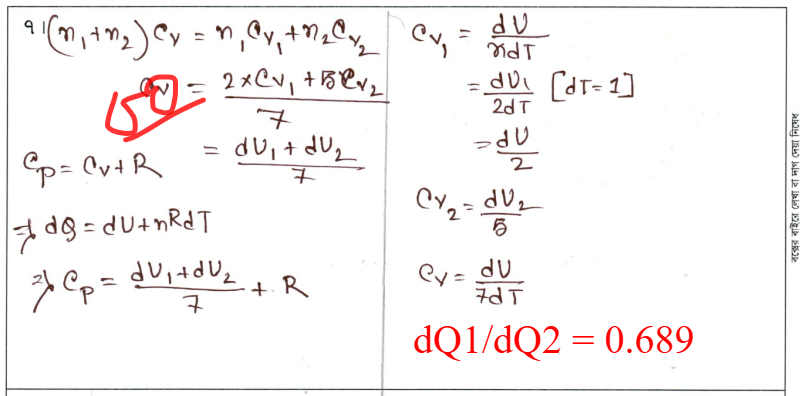 91 (n₁+n₂) Cv = n₁Cv₁+n₂Cv₂
Cv = 2×Cv₁+5Cv₂ / 7
= dU₁+dU₂ / 7
Cp = Cv+R
⇒ dQ = dU+nRdT
⇒ Cp = dU₁+dU₂ / 7 + R
Cv₁ = dU / ndT
= dU₁ / 2dT [dT=1]
= dU / 2
Cv₂ = dU₂ / 5
Cv = dU / 7dT
dQ1/dQ2 = 0.689
বক্সের বাইরে লেখা বা দাগ দেয়া নিষেধ